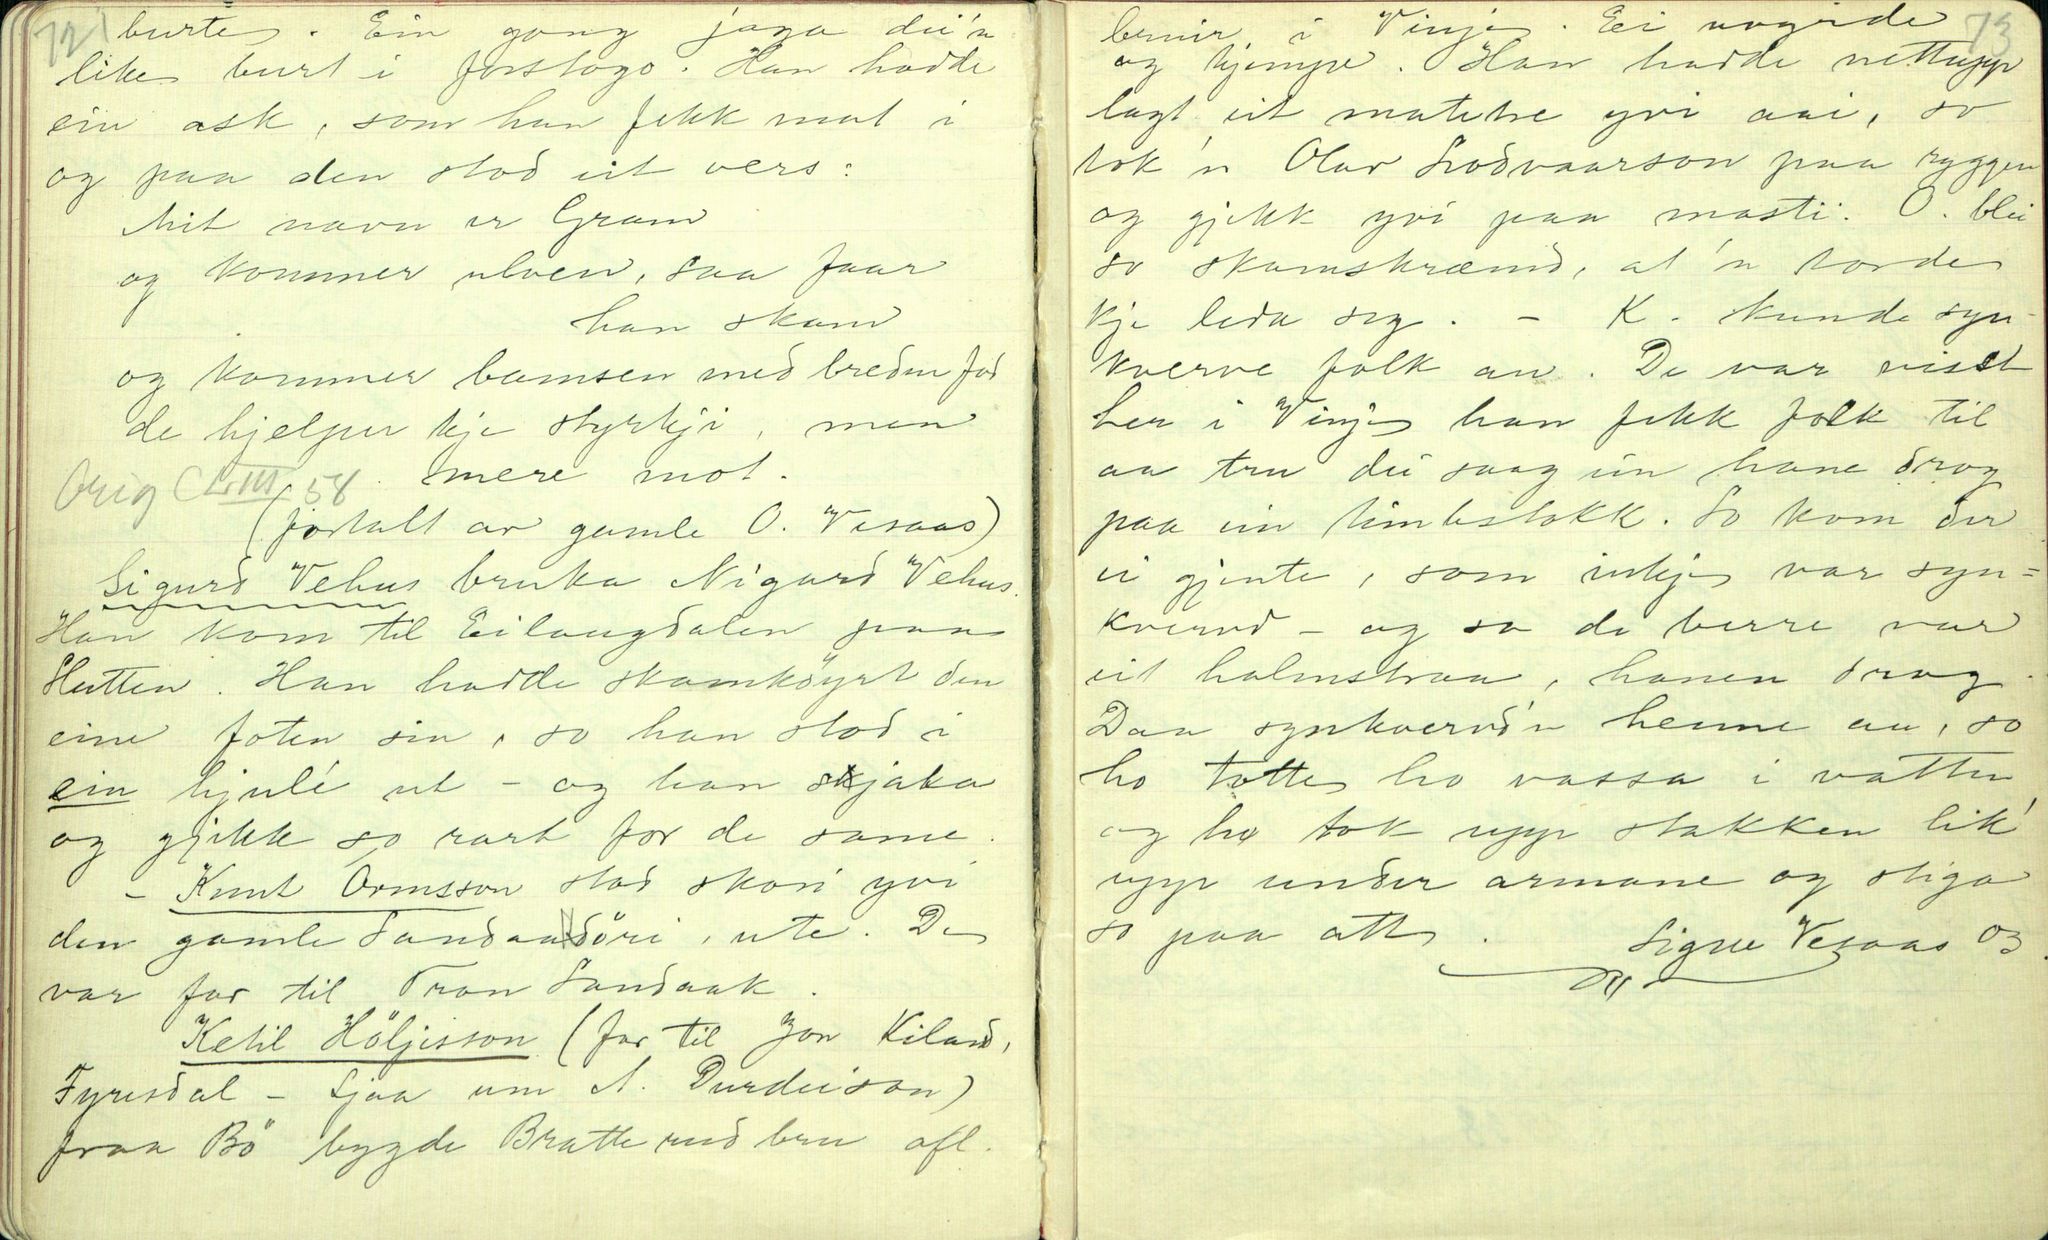 72
burte. Ein gong jaga dei'n
like burt i forstogo. Han hadde
ein ask, som han fekk mat i
og paa den stod eit vers:
Mit navn er Gram
og kommer ulven, saa faar
han skam
og kommer bamsen med breden fod
de hjelper kje styrkji, men
mere mot.
Orig CLIII 58
(fortalt av gamle O. Vesaas)
Sigurd Vehus bruka Nigard Vehus.
Han kom til Eilaugdalen paa
Slutten. Han hadde skamköyrt den
eine foten sin, so han stod i
ein hjulé ut – og han skjaka
og gjekk so rart for de same.
– Knut Ormsson stod skori yvi
den gamle Sandaakdöri, ute. De
var far til Tron Sandaak.
Ketil Höljisson (far til Jon Kiland,
Fyresdal – sjaa um A. Durdeison)
fraa Bö bygde Bratterudbru ofl.
73
bruir i Vinje. Ei
og kjempe. Han hadde nettupp
lagt eit matetre yvi aai, so
tok 'n Olav Lodvaarson paa ryggen
og gjekk yvi paa masti. O. blei
so skamskræmd, at 'n torde
kje leda seg. – K. kunde syn-
kverve folk au. De var visst
her i Vinje han fekk folk til
aa tru dei saag ein hane drog
paa ein timbstokk. So kom der
ei gjente, som inkje var syn=
kvervd – og sa de berre var
eit halmstraa, hanen drog.
Daa synkvervd'n henne au, so
ho totte ho vassa i vatten
og ho tok upp stakken lik'
upp under armane og stiga
so paa att.
Signe Vesaas og